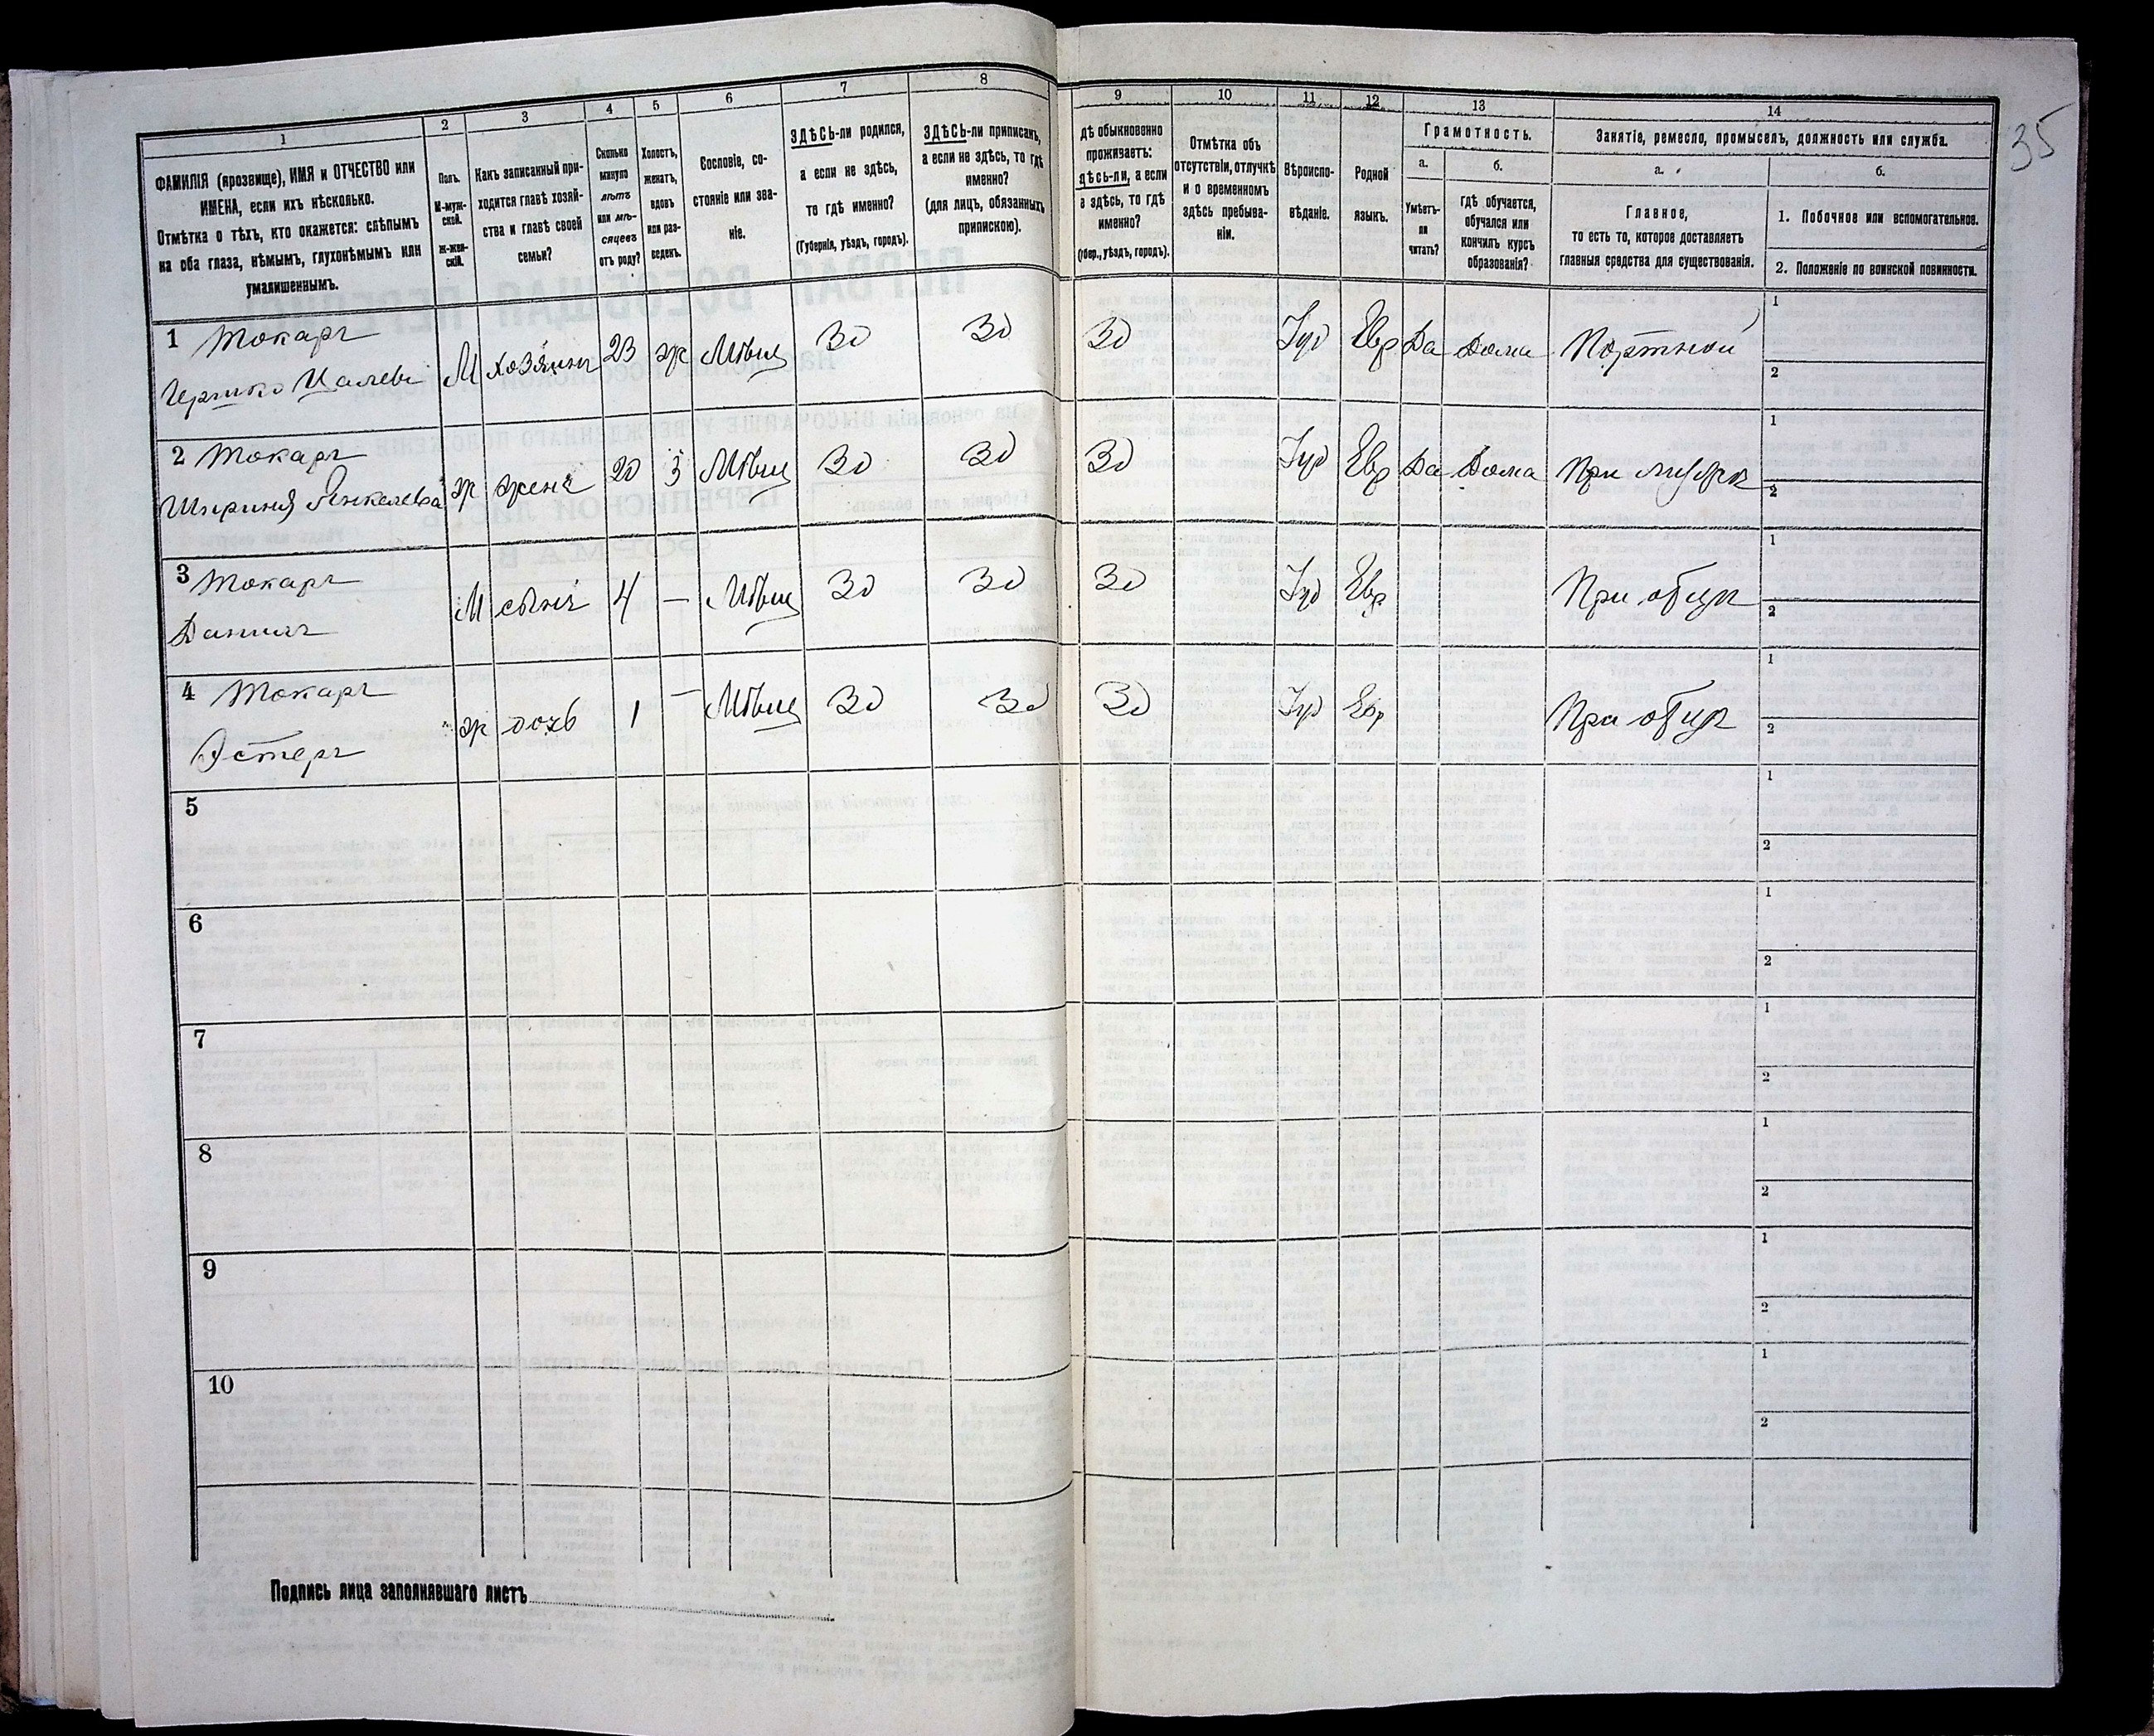 1 2 3 4 5 6 7 8 9 10 11 12 13 14
35
ФАМИЛІЯ (прозвище), ИМЯ и ОТЧЕСТВО или
ИМЕНА, если ихъ нѣсколько.
Отмѣтка о тѣхъ, кто окажется: слѣпымъ
на оба глаза, нѣмымъ, глухонѣмымъ или
умалишеннымъ.
Полъ.
М-муж-
ской.
ж-жен-
скій.
Какъ записанный при-
ходится главѣ хозяй-
ства и главѣ своей
семьи?
Сколько
минуло
лѣтъ
или мѣ-
сяцевъ
отъ роду?
Холостъ,
женатъ,
вдовъ
или раз-
веденъ.
Сословіе, со-
стояніе или зва-
ніе.
ЗДѢСЬ-ли родился,
а если не здѣсь,
то гдѣ именно?
(Губернія, уѣздъ, городъ).
ЗДѢСЬ-ли приписанъ,
а если не здѣсь, то гдѣ
именно?
(для лицъ, обязанныхъ
припискою).
дѣ обыкновенно
проживаетъ:
дѣсь-ли, а если
а здѣсь, то гдѣ
именно?
(губер., уѣздъ, городъ).
Отмѣтка объ
отсутствіи, отлучкѣ
и о временномъ
здѣсь пребыва-
ніи.
Вѣроиспо-
вѣданіе.
Родной
языкъ.
Грамотность.
а.
Умѣетъ-
ли
читать?
б.
Гдѣ обучается,
обучался или
кончилъ курсъ
образованія?
Занятіе, ремесло, промыселъ, должность или служба.
а.
Главное,
то есть то, которое доставляетъ
главныя средства для существованія.
б.
1. Побочное или вспомогательное.
2. Положеніе по воинской повинности.
1 Токарь М хозяинъ 23 ж Мѣщ Зд Зд Зд Іуд Евр Да Дома Портной 1
Гершко 2
2 Токарь ж жена 20 З Мѣщ Зд Зд Зд Іуд Евр Да Дома При мужѣ 1
Янкелева 2
3 Токарь М сынъ 4 — Мѣщ Зд Зд Зд Іуд Евр При отцѣ 1
2
4 Токарь ж дочь 1 — Мѣщ Зд Зд Зд Іуд Евр При отцѣ 1
Эстеръ 2
5 1
2
6 1
2
7 1
2
8 1
2
9 1
2
10 1
2
Подпись лица заполнявшаго листъ